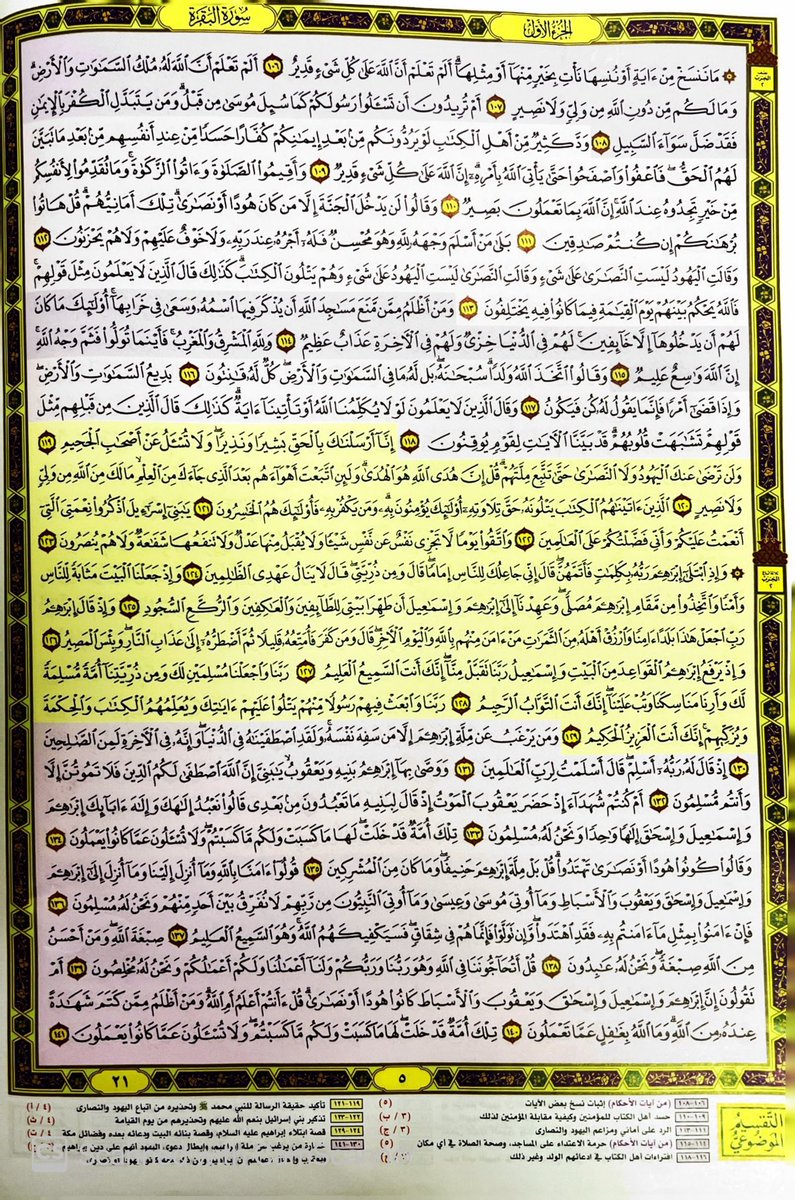 الجزء الأول
سورة البقرة
۞ مَا نَنسَخْ مِنْ ءَايَةٍ أَوْ نُنسِهَا نَأْتِ بِخَيْرٍ مِّنْهَآ أَوْ مِثْلِهَآ ۗ أَلَمْ تَعْلَمْ أَنَّ ٱللَّهَ عَلَىٰ كُلِّ شَىْءٍ قَدِيرٌ ١٠٦ أَلَمْ تَعْلَمْ أَنَّ ٱللَّهَ لَهُۥ مُلْكُ ٱلسَّمَٰوَٰتِ وَٱلْأَرْضِ ۗ
وَمَا لَكُم مِّن دُونِ ٱللَّهِ مِن وَلِىٍّ وَلَا نَصِيرٍ ١٠٧ أَمْ تُرِيدُونَ أَن تَسْـَٔلُوا۟ رَسُولَكُمْ كَمَا سُئِلَ مُوسَىٰ مِن قَبْلُ ۗ وَمَن يَتَبَدَّلِ ٱلْكُفْرَ بِٱلْإِيمَٰنِ
فَقَدْ ضَلَّ سَوَآءَ ٱلسَّبِيلِ ١٠٨ وَدَّ كَثِيرٌ مِّنْ أَهْلِ ٱلْكِتَٰبِ لَوْ يَرُدُّونَكُم مِّنۢ بَعْدِ إِيمَٰنِكُمْ كُفَّارًا حَسَدًا مِّنْ عِندِ أَنفُسِهِم مِّنۢ بَعْدِ مَا تَبَيَّنَ
لَهُمُ ٱلْحَقُّ ۖ فَٱعْفُوا۟ وَٱصْفَحُوا۟ حَتَّىٰ يَأْتِىَ ٱللَّهُ بِأَمْرِهِۦٓ ۗ إِنَّ ٱللَّهَ عَلَىٰ كُلِّ شَىْءٍ قَدِيرٌ ١٠٩ وَأَقِيمُوا۟ ٱلصَّلَوٰةَ وَءَاتُوا۟ ٱلزَّكَوٰةَ ۚ وَمَا تُقَدِّمُوا۟ لِأَنفُسِكُم
مِّنْ خَيْرٍ تَجِدُوهُ عِندَ ٱللَّهِ ۗ إِنَّ ٱللَّهَ بِمَا تَعْمَلُونَ بَصِيرٌ ١١٠ وَقَالُوا۟ لَن يَدْخُلَ ٱلْجَنَّةَ إِلَّا مَن كَانَ هُودًا أَوْ نَصَٰرَىٰ ۗ تِلْكَ أَمَانِيُّهُمْ ۗ قُلْ هَاتُوا۟
بُرْهَٰنَكُمْ إِن كُنتُمْ صَٰدِقِينَ ١١١ بَلَىٰ مَنْ أَسْلَمَ وَجْهَهُۥ لِلَّهِ وَهُوَ مُحْسِنٌ فَلَهُۥٓ أَجْرُهُۥ عِندَ رَبِّهِۦ وَلَا خَوْفٌ عَلَيْهِمْ وَلَا هُمْ يَحْزَنُونَ ١١٢
وَقَالَتِ ٱلْيَهُودُ لَيْسَتِ ٱلنَّصَٰرَىٰ عَلَىٰ شَىْءٍ وَقَالَتِ ٱلنَّصَٰرَىٰ لَيْسَتِ ٱلْيَهُودُ عَلَىٰ شَىْءٍ وَهُمْ يَتْلُونَ ٱلْكِتَٰبَ ۗ كَذَٰلِكَ قَالَ ٱلَّذِينَ لَا يَعْلَمُونَ مِثْلَ قَوْلِهِمْ ۚ
فَٱللَّهُ يَحْكُمُ بَيْنَهُمْ يَوْمَ ٱلْقِيَٰمَةِ فِيمَا كَانُوا۟ فِيهِ يَخْتَلِفُونَ ١١٣ وَمَنْ أَظْلَمُ مِمَّن مَّنَعَ مَسَٰجِدَ ٱللَّهِ أَن يُذْكَرَ فِيهَا ٱسْمُهُۥ وَسَعَىٰ فِى خَرَابِهَآ ۚ أُو۟لَٰٓئِكَ مَا كَانَ
لَهُمْ أَن يَدْخُلُوهَآ إِلَّا خَآئِفِينَ ۚ لَهُمْ فِى ٱلدُّنْيَا خِزْىٌ وَلَهُمْ فِى ٱلْءَاخِرَةِ عَذَابٌ عَظِيمٌ ١١٤ وَلِلَّهِ ٱلْمَشْرِقُ وَٱلْمَغْرِبُ ۚ فَأَيْنَمَا تُوَلُّوا۟ فَثَمَّ وَجْهُ ٱللَّهِ ۚ
إِنَّ ٱللَّهَ وَٰسِعٌ عَلِيمٌ ١١٥ وَقَالُوا۟ ٱتَّخَذَ ٱللَّهُ وَلَدًا ۗ سُبْحَٰنَهُۥ ۖ بَل لَّهُۥ مَا فِى ٱلسَّمَٰوَٰتِ وَٱلْأَرْضِ ۖ كُلٌّ لَّهُۥ قَٰنِتُونَ ١١٦ بَدِيعُ ٱلسَّمَٰوَٰتِ وَٱلْأَرْضِ ۖ
وَإِذَا قَضَىٰٓ أَمْرًا فَإِنَّمَا يَقُولُ لَهُۥ كُن فَيَكُونُ ١١٧ وَقَالَ ٱلَّذِينَ لَا يَعْلَمُونَ لَوْلَا يُكَلِّمُنَا ٱللَّهُ أَوْ تَأْتِينَآ ءَايَةٌ ۗ كَذَٰلِكَ قَالَ ٱلَّذِينَ مِن قَبْلِهِم مِّثْلَ
قَوْلِهِمْ ۘ تَشَٰبَهَتْ قُلُوبُهُمْ ۗ قَدْ بَيَّنَّا ٱلْءَايَٰتِ لِقَوْمٍ يُوقِنُونَ ١١٨ إِنَّآ أَرْسَلْنَٰكَ بِٱلْحَقِّ بَشِيرًا وَنَذِيرًا ۖ وَلَا تُسْـَٔلُ عَنْ أَصْحَٰبِ ٱلْجَحِيمِ ١١٩
وَلَن تَرْضَىٰ عَنكَ ٱلْيَهُودُ وَلَا ٱلنَّصَٰرَىٰ حَتَّىٰ تَتَّبِعَ مِلَّتَهُمْ ۗ قُلْ إِنَّ هُدَى ٱللَّهِ هُوَ ٱلْهُدَىٰ ۗ وَلَئِنِ ٱتَّبَعْتَ أَهْوَآءَهُم بَعْدَ ٱلَّذِى جَآءَكَ مِنَ ٱلْعِلْمِ ۙ مَا لَكَ مِنَ ٱللَّهِ مِن وَلِىٍّ
وَلَا نَصِيرٍ ١٢٠ ٱلَّذِينَ ءَاتَيْنَٰهُمُ ٱلْكِتَٰبَ يَتْلُونَهُۥ حَقَّ تِلَاوَتِهِۦٓ أُو۟لَٰٓئِكَ يُؤْمِنُونَ بِهِۦ ۗ وَمَن يَكْفُرْ بِهِۦ فَأُو۟لَٰٓئِكَ هُمُ ٱلْخَٰسِرُونَ ١٢١ يَٰبَنِىٓ إِسْرَٰٓءِيلَ ٱذْكُرُوا۟ نِعْمَتِىَ ٱلَّتِىٓ
أَنْعَمْتُ عَلَيْكُمْ وَأَنِّى فَضَّلْتُكُمْ عَلَى ٱلْعَٰلَمِينَ ١٢٢ وَٱتَّقُوا۟ يَوْمًا لَّا تَجْزِى نَفْسٌ عَن نَّفْسٍ شَيْـًٔا وَلَا يُقْبَلُ مِنْهَا عَدْلٌ وَلَا تَنفَعُهَا شَفَٰعَةٌ وَلَا هُمْ يُنصَرُونَ ١٢٣
۞ وَإِذِ ٱبْتَلَىٰٓ إِبْرَٰهِۦمَ رَبُّهُۥ بِكَلِمَٰتٍ فَأَتَمَّهُنَّ ۖ قَالَ إِنِّى جَاعِلُكَ لِلنَّاسِ إِمَامًا ۖ قَالَ وَمِن ذُرِّيَّتِى ۖ قَالَ لَا يَنَالُ عَهْدِى ٱلظَّٰلِمِينَ ١٢٤ وَإِذْ جَعَلْنَا ٱلْبَيْتَ مَثَابَةً لِّلنَّاسِ
وَأَمْنًا وَٱتَّخِذُوا۟ مِن مَّقَامِ إِبْرَٰهِۦمَ مُصَلًّى ۖ وَعَهِدْنَآ إِلَىٰٓ إِبْرَٰهِۦمَ وَإِسْمَٰعِيلَ أَن طَهِّرَا بَيْتِىَ لِلطَّآئِفِينَ وَٱلْعَٰكِفِينَ وَٱلرُّكَّعِ ٱلسُّجُودِ ١٢٥ وَإِذْ قَالَ إِبْرَٰهِۦمُ
رَبِّ ٱجْعَلْ هَٰذَا بَلَدًا ءَامِنًا وَٱرْزُقْ أَهْلَهُۥ مِنَ ٱلثَّمَرَٰتِ مَنْ ءَامَنَ مِنْهُم بِٱللَّهِ وَٱلْيَوْمِ ٱلْءَاخِرِ ۖ قَالَ وَمَن كَفَرَ فَأُمَتِّعُهُۥ قَلِيلًا ثُمَّ أَضْطَرُّهُۥٓ إِلَىٰ عَذَابِ ٱلنَّارِ ۖ وَبِئْسَ ٱلْمَصِيرُ ١٢٦
وَإِذْ يَرْفَعُ إِبْرَٰهِۦمُ ٱلْقَوَاعِدَ مِنَ ٱلْبَيْتِ وَإِسْمَٰعِيلُ رَبَّنَا تَقَبَّلْ مِنَّآ ۖ إِنَّكَ أَنتَ ٱلسَّمِيعُ ٱلْعَلِيمُ ١٢٧ رَبَّنَا وَٱجْعَلْنَا مُسْلِمَيْنِ لَكَ وَمِن ذُرِّيَّتِنَآ أُمَّةً مُّسْلِمَةً
لَّكَ وَأَرِنَا مَنَاسِكَنَا وَتُبْ عَلَيْنَآ ۖ إِنَّكَ أَنتَ ٱلتَّوَّابُ ٱلرَّحِيمُ ١٢٨ رَبَّنَا وَٱبْعَثْ فِيهِمْ رَسُولًا مِّنْهُمْ يَتْلُوا۟ عَلَيْهِمْ ءَايَٰتِكَ وَيُعَلِّمُهُمُ ٱلْكِتَٰبَ وَٱلْحِكْمَةَ
وَيُزَكِّيهِمْ ۚ إِنَّكَ أَنتَ ٱلْعَزِيزُ ٱلْحَكِيمُ ١٢٩ وَمَن يَرْغَبُ عَن مِّلَّةِ إِبْرَٰهِۦمَ إِلَّا مَن سَفِهَ نَفْسَهُۥ ۚ وَلَقَدِ ٱصْطَفَيْنَٰهُ فِى ٱلدُّنْيَا ۖ وَإِنَّهُۥ فِى ٱلْءَاخِرَةِ لَمِنَ ٱلصَّٰلِحِينَ
١٣٠ إِذْ قَالَ لَهُۥ رَبُّهُۥٓ أَسْلِمْ ۖ قَالَ أَسْلَمْتُ لِرَبِّ ٱلْعَٰلَمِينَ ١٣١ وَوَصَّىٰ بِهَآ إِبْرَٰهِۦمُ بَنِيهِ وَيَعْقُوبُ يَٰبَنِىَّ إِنَّ ٱللَّهَ ٱصْطَفَىٰ لَكُمُ ٱلدِّينَ فَلَا تَمُوتُنَّ إِلَّا
وَأَنتُم مُّسْلِمُونَ ١٣٢ أَمْ كُنتُمْ شُهَدَآءَ إِذْ حَضَرَ يَعْقُوبَ ٱلْمَوْتُ إِذْ قَالَ لِبَنِيهِ مَا تَعْبُدُونَ مِنۢ بَعْدِى قَالُوا۟ نَعْبُدُ إِلَٰهَكَ وَإِلَٰهَ ءَابَآئِكَ إِبْرَٰهِۦمَ
وَإِسْمَٰعِيلَ وَإِسْحَٰقَ إِلَٰهًا وَٰحِدًا وَنَحْنُ لَهُۥ مُسْلِمُونَ ١٣٣ تِلْكَ أُمَّةٌ قَدْ خَلَتْ ۖ لَهَا مَا كَسَبَتْ وَلَكُم مَّا كَسَبْتُمْ ۖ وَلَا تُسْـَٔلُونَ عَمَّا كَانُوا۟ يَعْمَلُونَ ١٣٤
وَقَالُوا۟ كُونُوا۟ هُودًا أَوْ نَصَٰرَىٰ تَهْتَدُوا۟ ۗ قُلْ بَلْ مِلَّةَ إِبْرَٰهِۦمَ حَنِيفًا ۖ وَمَا كَانَ مِنَ ٱلْمُشْرِكِينَ ١٣٥ قُولُوٓا۟ ءَامَنَّا بِٱللَّهِ وَمَآ أُنزِلَ إِلَيْنَا وَمَآ أُنزِلَ إِلَىٰٓ إِبْرَٰهِۦمَ
وَإِسْمَٰعِيلَ وَإِسْحَٰقَ وَيَعْقُوبَ وَٱلْأَسْبَاطِ وَمَآ أُوتِىَ مُوسَىٰ وَعِيسَىٰ وَمَآ أُوتِىَ ٱلنَّبِيُّونَ مِن رَّبِّهِمْ لَا نُفَرِّقُ بَيْنَ أَحَدٍ مِّنْهُمْ وَنَحْنُ لَهُۥ مُسْلِمُونَ ١٣٦
فَإِنْ ءَامَنُوا۟ بِمِثْلِ مَآ ءَامَنتُم بِهِۦ فَقَدِ ٱهْتَدَوا۟ ۖ وَّإِن تَوَلَّوْا۟ فَإِنَّمَا هُمْ فِى شِقَاقٍ ۖ فَسَيَكْفِيكَهُمُ ٱللَّهُ ۚ وَهُوَ ٱلسَّمِيعُ ٱلْعَلِيمُ ١٣٧ صِبْغَةَ ٱللَّهِ ۖ وَمَنْ أَحْسَنُ
مِنَ ٱللَّهِ صِبْغَةً ۖ وَنَحْنُ لَهُۥ عَٰبِدُونَ ١٣٨ قُلْ أَتُحَآجُّونَنَا فِى ٱللَّهِ وَهُوَ رَبُّنَا وَرَبُّكُمْ وَلَنَآ أَعْمَٰلُنَا وَلَكُمْ أَعْمَٰلُكُمْ وَنَحْنُ لَهُۥ مُخْلِصُونَ ١٣٩ أَمْ
تَقُولُونَ إِنَّ إِبْرَٰهِۦمَ وَإِسْمَٰعِيلَ وَإِسْحَٰقَ وَيَعْقُوبَ وَٱلْأَسْبَاطَ كَانُوا۟ هُودًا أَوْ نَصَٰرَىٰ ۗ قُلْ ءَأَنتُمْ أَعْلَمُ أَمِ ٱللَّهُ ۗ وَمَنْ أَظْلَمُ مِمَّن كَتَمَ شَهَٰدَةً
عِندَهُۥ مِنَ ٱللَّهِ ۗ وَمَا ٱللَّهُ بِغَٰفِلٍ عَمَّا تَعْمَلُونَ ١٤٠ تِلْكَ أُمَّةٌ قَدْ خَلَتْ ۖ لَهَا مَا كَسَبَتْ وَلَكُم مَّا كَسَبْتُمْ ۖ وَلَا تُسْـَٔلُونَ عَمَّا كَانُوا۟ يَعْمَلُونَ ١٤١
٥
٢١
التقسيم الموضوعي
١٠٦-١٠٨ (من آيات الأحكام) إثبات نسخ بعض الآيات (٥)
١٠٩-١١٠ حسد أهل الكتاب للمؤمنين وكيفية مقابلة المؤمنين لذلك (٣/ب)
١١١-١١٣ الرد على أماني ومزاعم اليهود والنصارى (٣/ج)
١١٤-١١٥ (من آيات الأحكام) حرمة الاعتداء على المساجد، وصحة الصلاة في أي مكان (٥)
١١٦-١١٨ افتراءات أهل الكتاب في ادعائهم الولد وغير ذلك
١١٩-١٢١ تأكيد حقيقة الرسالة للنبي محمد ﷺ وتحذيره من اتباع اليهود والنصارى (٤/أ)
١٢٢-١٢٣ تذكير بني إسرائيل بنعم الله عليهم وتحذيرهم من يوم القيامة (٤/ب)
١٢٤-١٢٩ قصة ابتلاء إبراهيم عليه السلام، وقصة بنائه البيت ودعائه بعده وفضائل مكة (٤/ت)
١٣٠-١٤١ من يرغب عن ملة إبراهيم، وإبطال دعوى اليهود أنهم على دين إبراهيم